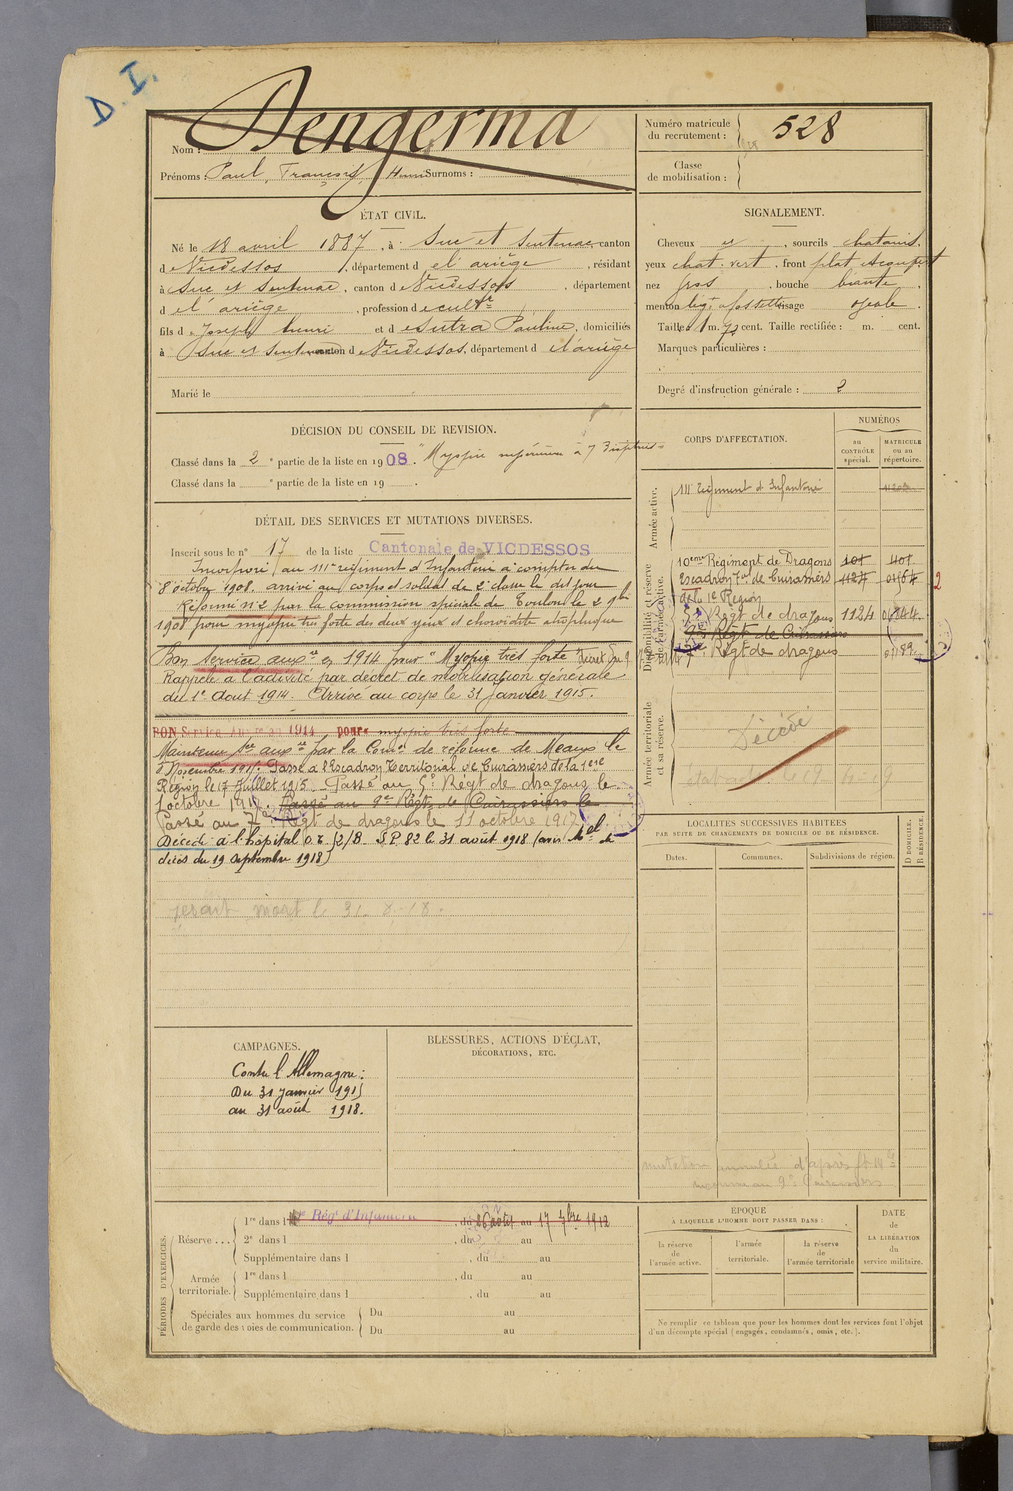 D. I.
Nom : Dengerma
Prénoms : Paul, François, Henri Surnoms :
Numéro matricule
du recrutement : 528
Classe
de mobilisation :
ÉTAT CIVIL.
Né le 18 avril 1887, à Suc et Sentenac, canton
d Vicdessos, département d el ariège, résidant
à Suc et Sentenac, canton d Vicdessos, département
d el ariège, profession de cultr
fils d Joseph henri et d esutra Pauline, domiciliés
à Suc et Sentenac canton d Vicdessos, département d el ariège
Marié le
SIGNALEMENT.
Cheveux et, sourcils chatains,
yeux chat. vert, front plat
nez gros, bouche
menton visage ovale
Taille : 1 m. 72 cent. Taille rectifiée : m. cent.
Marques particulières :
Degré d'instruction générale : 2
DÉCISION DU CONSEIL DE REVISION.
Classé dans la 2e partie de la liste en 1908. "Myopie inférieure à 7
Classé dans la e partie de la liste en 19 .
DÉTAIL DES SERVICES ET MUTATIONS DIVERSES.
Inscrit sous le n° 17 de la liste Cantonale de VICDESSOS
Incorporé au 111e régiment d'Infanterie à compter du
8 octobre 1908. arrivé au corps et soldat de 2e classe le dit jour
Réformé n° 2 par la commission spéciale de Toulon le 2 9bre
1908 pour myopie très forte des deux yeux et choroïdite atrophique
Bon service auxre en 1914 pour "Myopie très forte
Rappelé à l'activité par décret de mobilisation générale
du 1er Aout 1914. Arrivé au corps le 31 janvier 1915.
BON Service Auxre en 1914 pour myopie très forte
Maintenu Sce auxre par la Comon de réforme de Meaux le
Novembre 1915. Passé à l'Escadron Territorial de Cuirassiers de la 1ere
Région le 17 Juillet 1915. Passé au 5e Régt de dragons le
1 octobre 191 . Passé au 9e Régt de Cuirassiers le
Passé au 7e Régt de dragons le 11 octobre 1917
Décédé à l'hôpital O. E. S.P. 82 le 31 août 1918 (avis Mel de
décès du 19 Septembre 1918)
serait mort le 31-8-18.
CORPS D'AFFECTATION.
NUMÉROS
au
CONTRÔLE
spécial.
MATRICULE
ou au
répertoire.
Armée active.
111e Régiment d'Infanterie
Disponibilité et réserve
de l'armée active.
10eme Régiment de Dragons 401 401
Escadron Tal de Cuirassiers 2
de la 1e Région
5e Régt de dragons 1124
9e Régt de Cuirassiers
7e Régt de dragons
Armée territoriale
et sa réserve.
Décédé
LOCALITÉS SUCCESSIVES HABITÉES
PAR SUITE DE CHANGEMENTS DE DOMICILE OU DE RÉSIDENCE.
Dates.
Communes.
Subdivisions de région.
D DOMICILE.
R RÉSIDENCE.
mutation annulée d'après
au 9e Cuirassiers
CAMPAGNES.
Contre l'Allemagne :
Du 31 janvier 1915
au 31 août 1918.
BLESSURES, ACTIONS D'ÉCLAT,
DÉCORATIONS, ETC.
PÉRIODES D'EXERCICES.
Réserve ...
1re dans l Régt d'Infanterie, du 26 août au 17 7bre 1912
2e dans l , du au
Supplémentaire dans l , du au
Armée
territoriale.
1re dans l , du au
Supplémentaire dans l , du au
Spéciales aux hommes du service
de garde des voies de communication.
Du au
Du au
ÉPOQUE
À LAQUELLE L'HOMME DOIT PASSER DANS :
la réserve
de
l'armée active.
l'armée
territoriale.
la réserve
de
l'armée territoriale
DATE
de
LA LIBÉRATION
du
service militaire.
Ne remplir ce tableau que pour les hommes dont les services font l'objet
d'un décompte spécial (engagés, condamnés, omis, etc.).